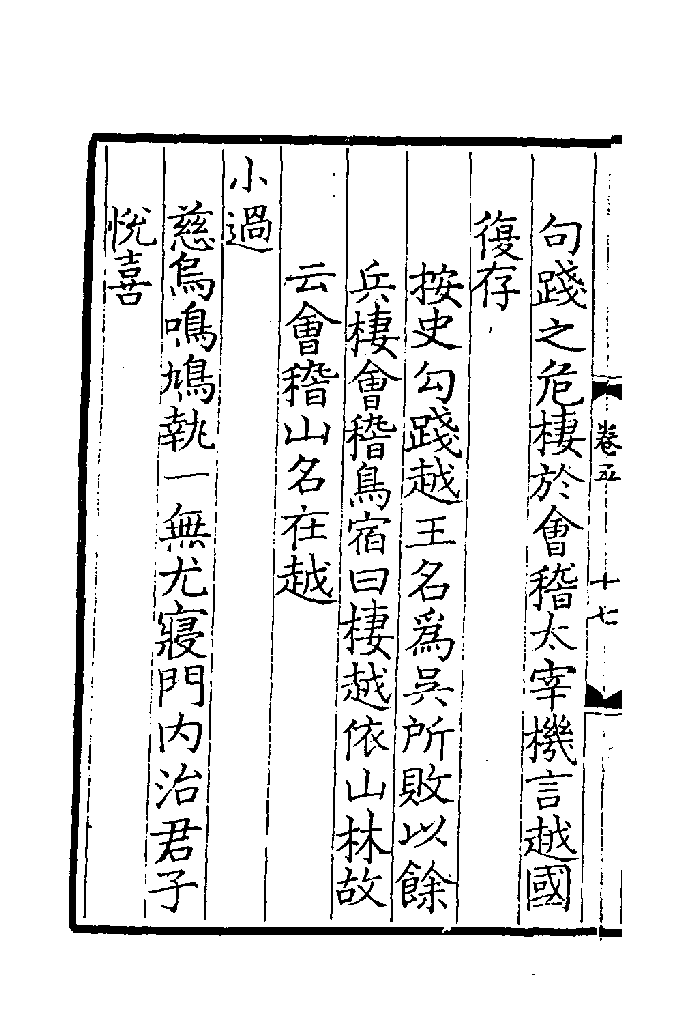 卷五 十七
句踐之危棲於會稽太宰機言越國
復存
按史勾踐越王名爲吳所敗以餘
兵棲會稽鳥宿曰棲越依山林故
云會稽山名在越
小過
慈烏鳴鳩執一無尤寢門内治君子
悅喜